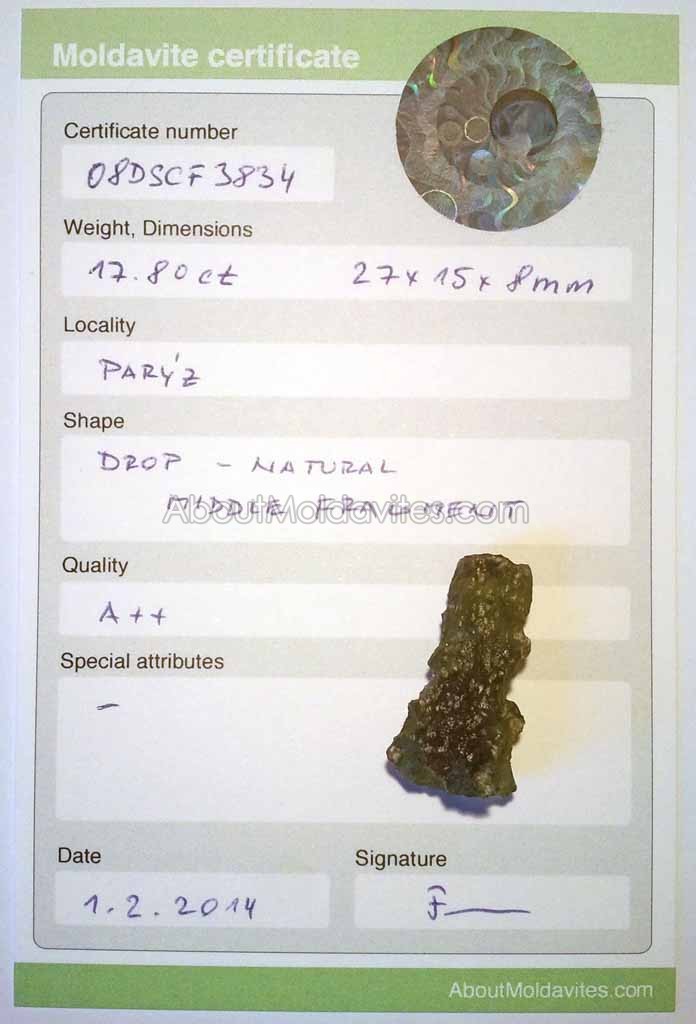 Moldavite certificate
Certificate number
08DSCF3834
Weight, Dimensions
17.80ct 27x15x8mm
Locality
PARÝZ
Shape
DROP - NATURAL
MIDDLE FRAGMENT
AboutMoldavites.com
Quality
A++
Special attributes
-
Date Signature
1.2.2014
AboutMoldavites.com